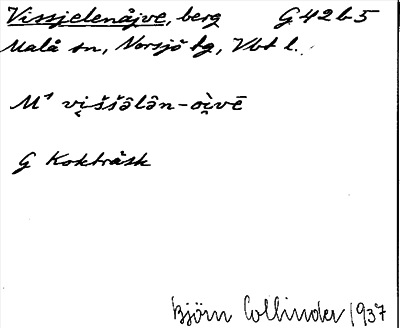 Vissjelenåjve, berg G 42 b 5
Malå sn, Norsjö tg, Vbt l.
M¹ vi̮ššā̮lā̮n-oi̮vē
G Kokträsk
Björn Collinder 1937